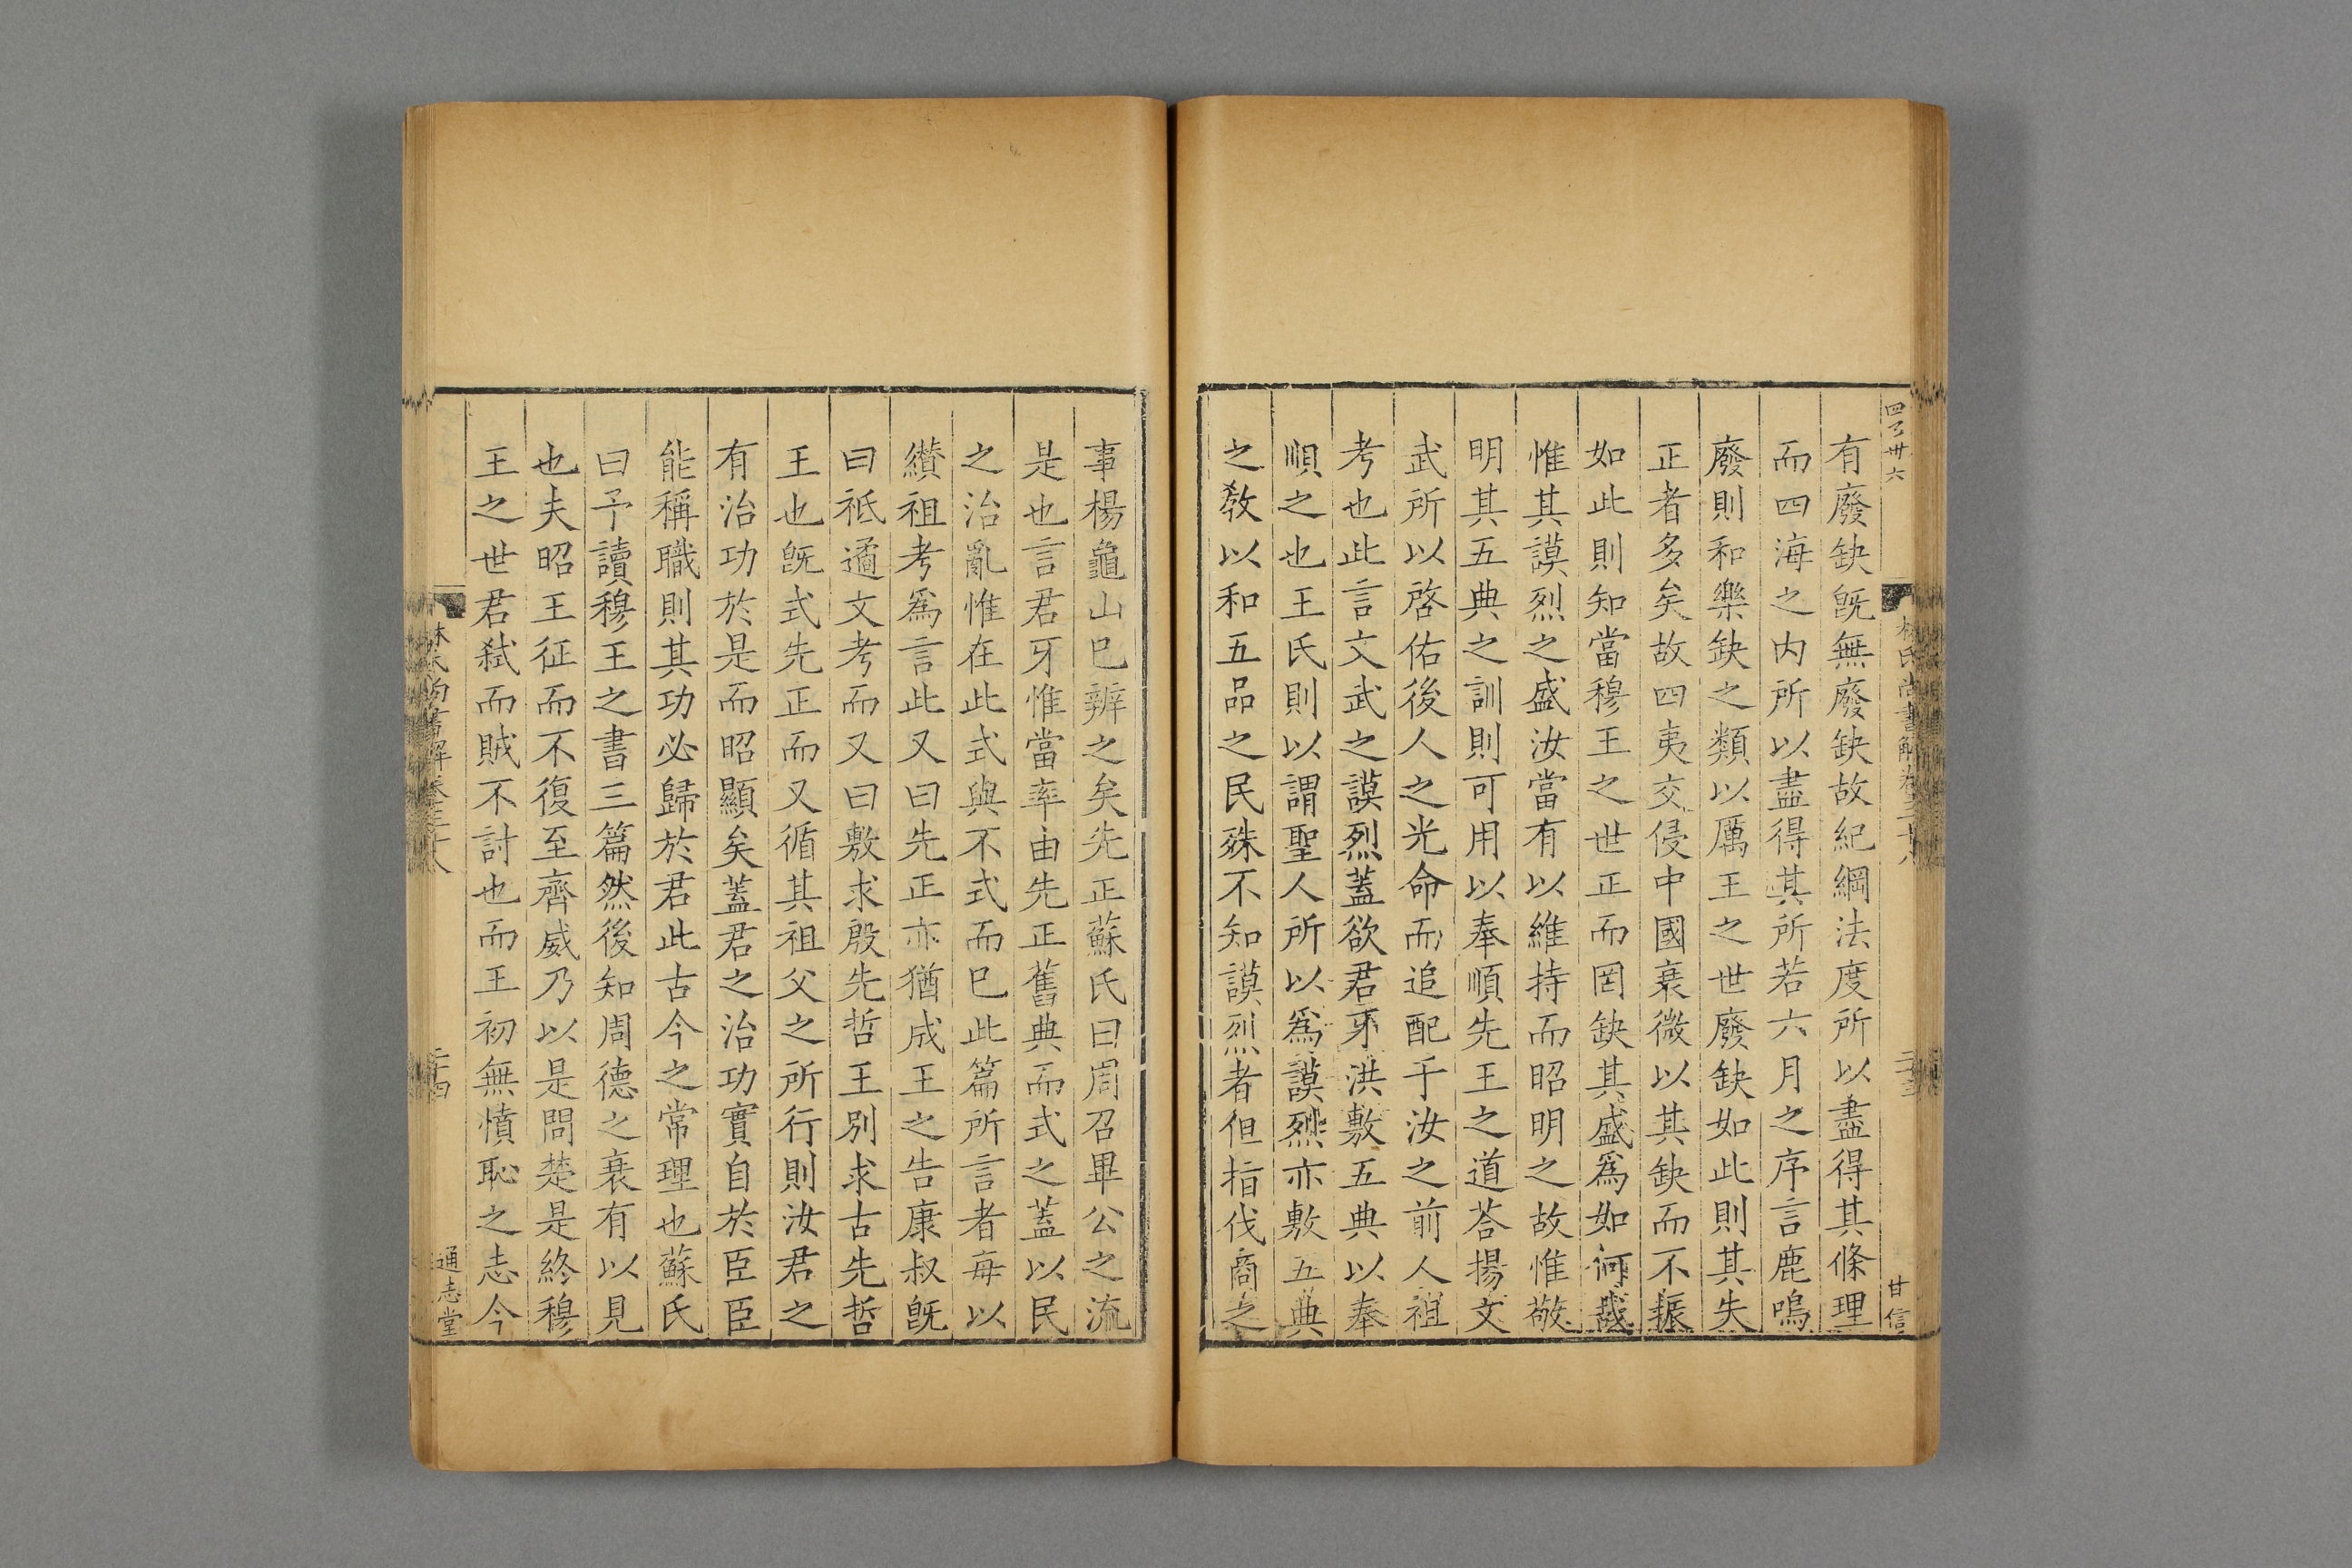 有廢缺旣無廢缺故紀綱法度所以盡得其條理
而四海之内所以盡得其所若六月之序言鹿鳴
廢則和樂缺之類以厲王之世廢缺如此則其失
正者多矣故四夷交侵中國衰微以其缺而不振
如此則知當穆王之世正而罔缺其盛爲如何哉
惟其謨烈之盛汝當有以維持而昭明之故惟敬
明其五典之訓則可用以奉順先王之道荅揚文
武所以啓佑後人之光命而追配于汝之前人祖
考也此言文武之謨烈蓋欲君牙洪敷五典以奉
順之也王氏則以謂聖人所以爲謨烈亦敷五典
之敎以和五品之民殊不知謨烈者但指伐商之
事楊龜山巳辨之矣先正蘇氏曰周召畢公之流
是也言君牙惟當率由先正舊典而式之蓋以民
之治亂惟在此式與不式而巳此篇所言者每以
纘祖考爲言此又曰先正亦猶成王之告康叔旣
曰祗遹文考而又曰敷求殷先哲王別求古先哲
王也旣式先正而又循其祖父之所行則汝君之
有治功於是而昭顯矣蓋君之治功實自於臣臣
能稱職則其功必歸於君此古今之常理也蘇氏
曰予讀穆王之書三篇然後知周德之衰有以見
也夫昭王征而不復至齊威乃以是問楚是終穆
王之世君弑而賊不討也而王初無憤恥之志今
林氏尚書解卷三十八
二十四
通志堂
甘信